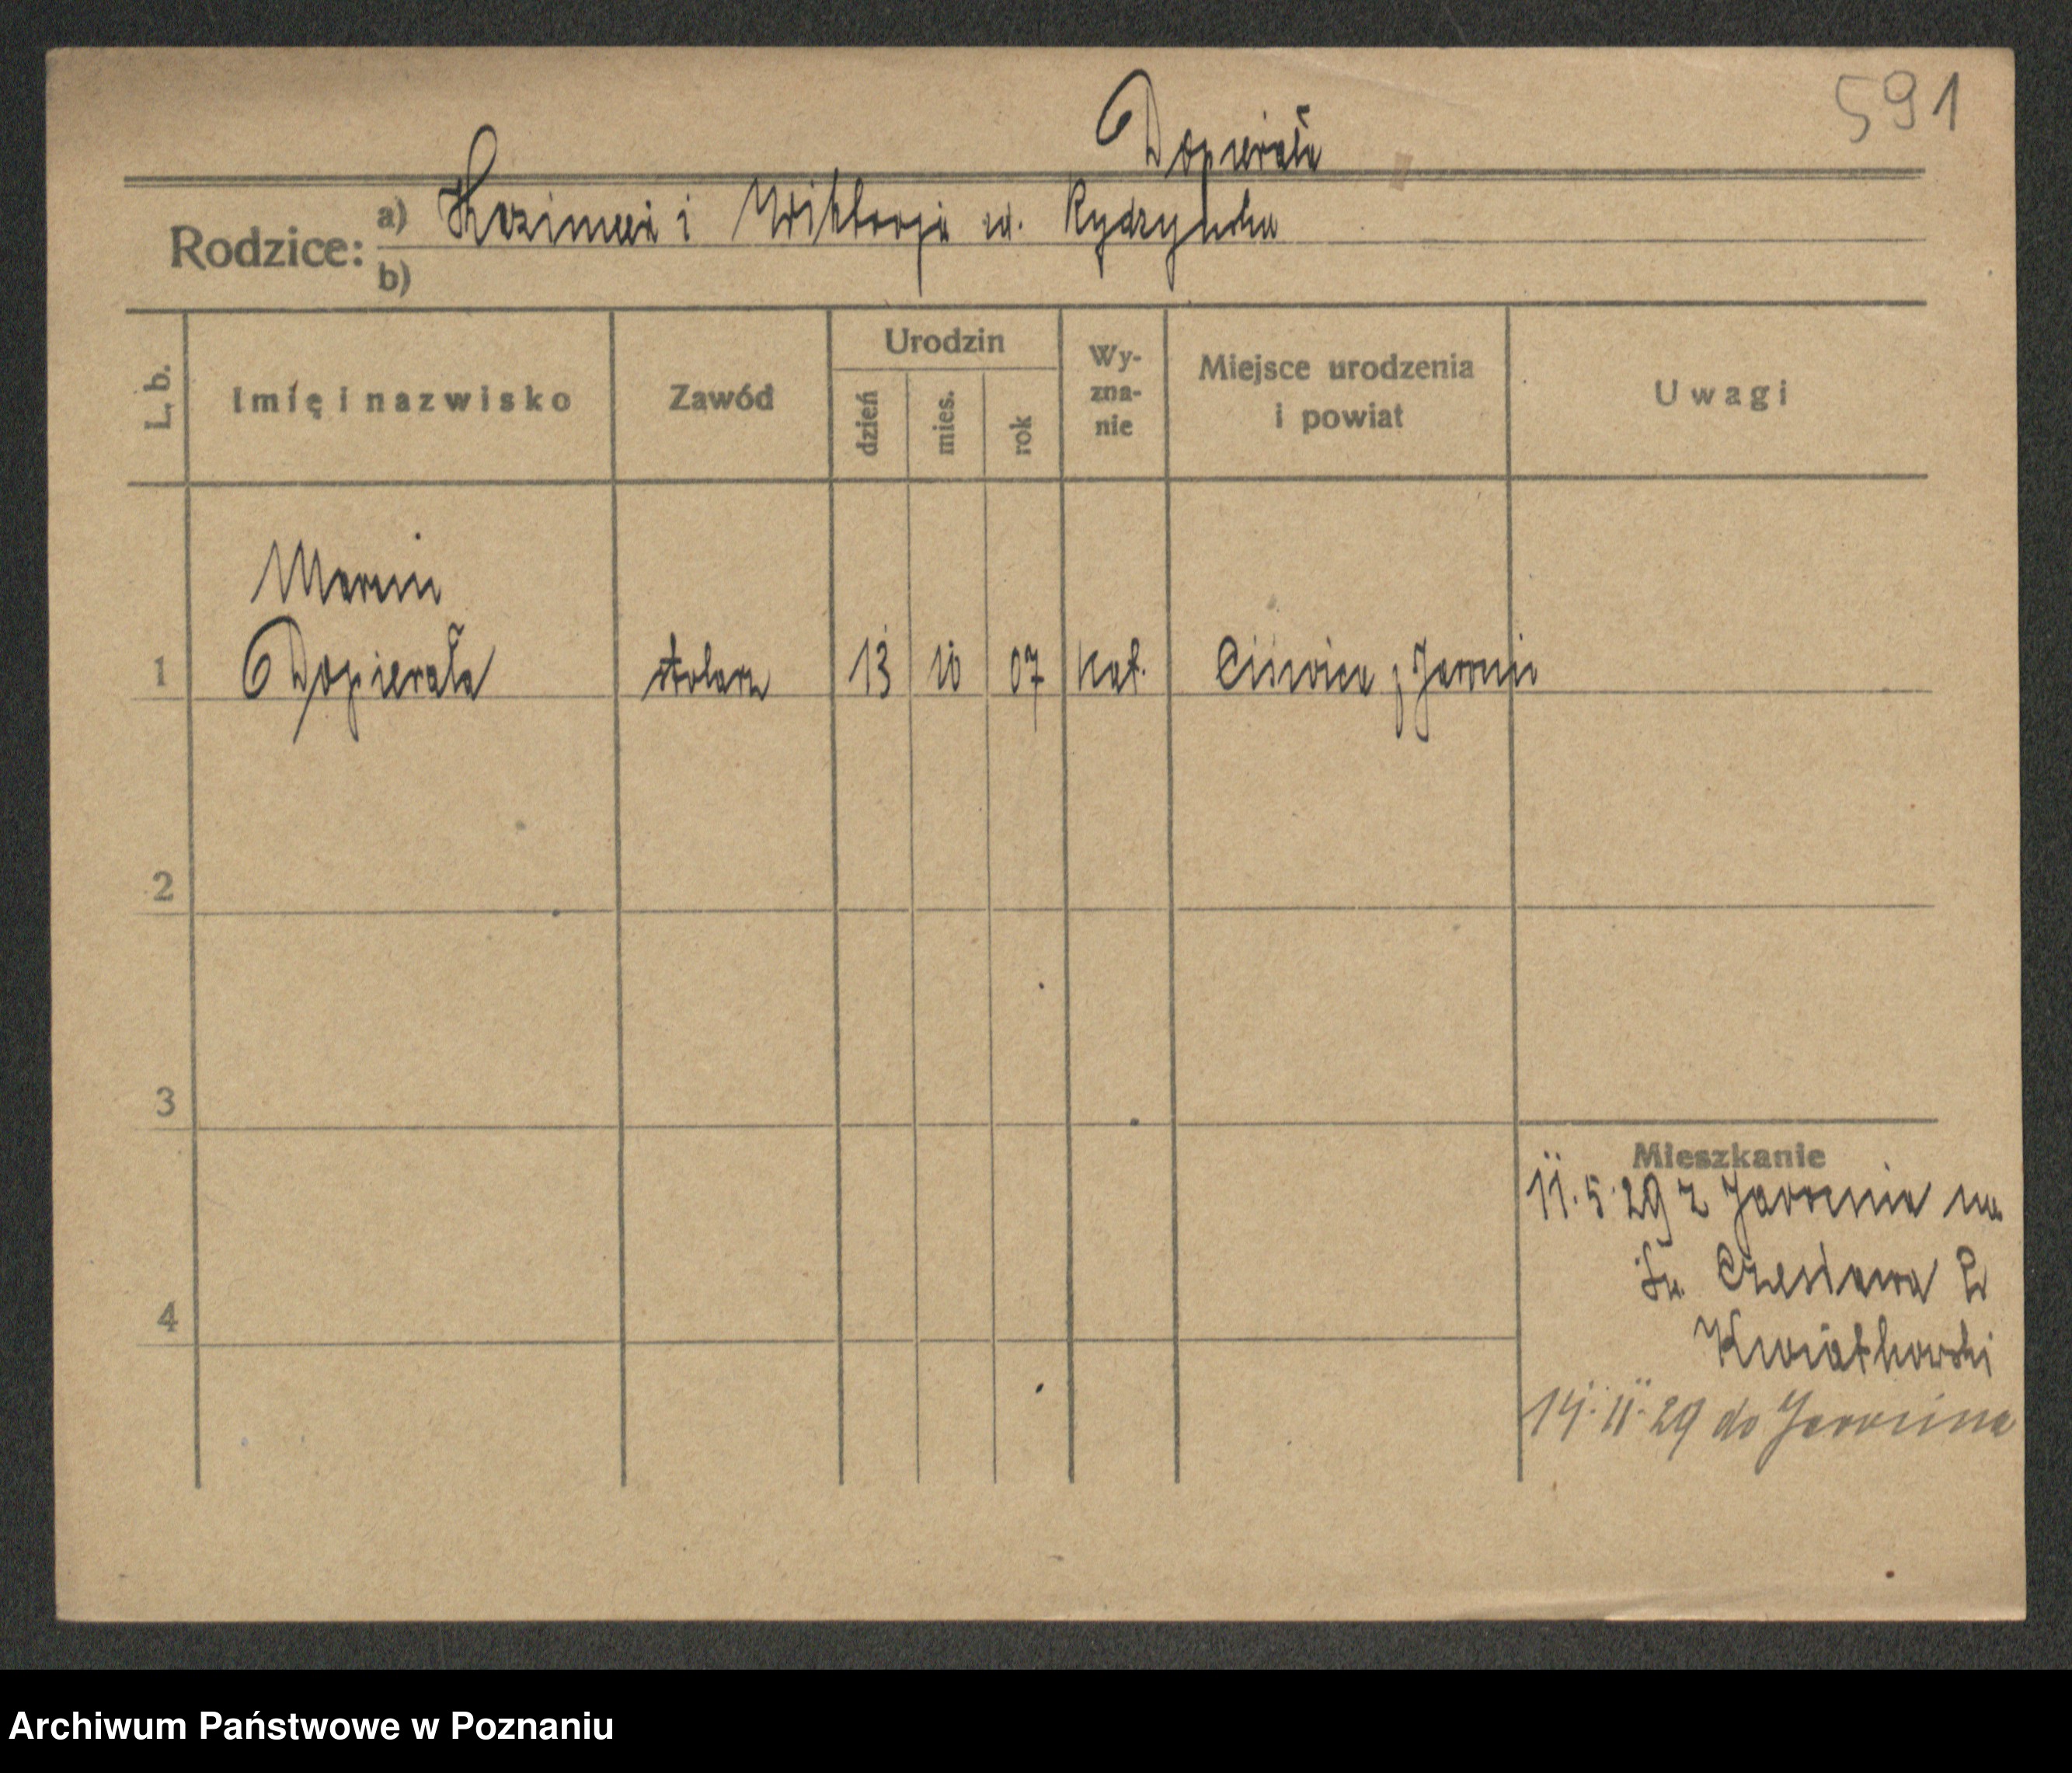 591
Dopierała
Rodzice: a) Kazimierz i Wiktorja ur. Rydzyńska
b)
L. b. Imię i nazwisko Zawód Urodzin dzień mies. rok Wy-zna-nie Miejsce urodzenia i powiat Uwagi
Marcin
1 Dopierała stolarz 13 10 07 kat. Cis­wica p. Jarocin
2
3
Mieszkanie
11. 5. 29 z Jarocina na
Św. Czesława
4
Kwiatkowski
14. 11. 29 do Jarocina
Archiwum Państwowe w Poznaniu